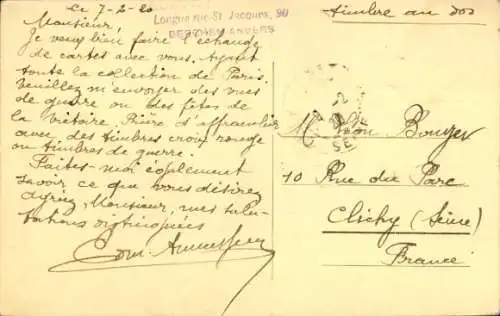 Ce 7-2-20
Longue rue St Jacques, 90
BERCHEM-ANVERS
timbre au dos
Monsieur,
Je veux bien faire l'échange
de cartes avec vous. Ayant
toute la collection de Paris.
Veuillez m'envoyer des vues
de guerre ou des fêtes de
la victoire. Prière d'affranchir
avec des timbres croix rouge
ou timbres de guerre.
Faites-moi également
savoir ce que vous désirez
Agréez Monsieur, mes salu-
tations distinguées
Mr Léon Bouyer
10 Rue du Parc
Clichy (Seine)
France